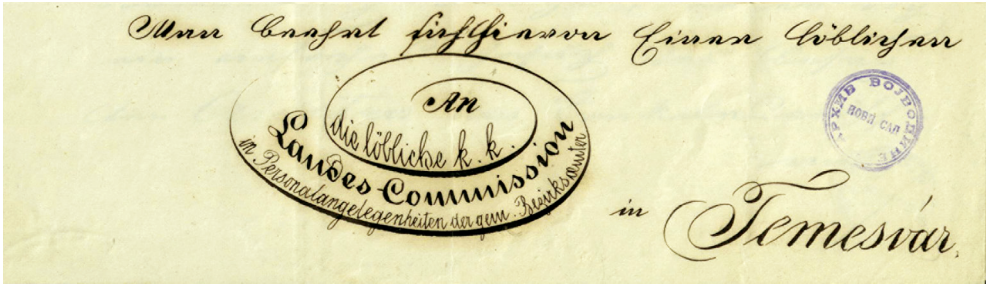 Man beehrt sich hievon Einer löblichen
An
die löbliche k. k.
Landes-Commission
in Personalangelegenheiten der gem. Bezirksämter
in Temesvár.
АРХИВ ВОЈВОДИНЕ
НОВИ САД